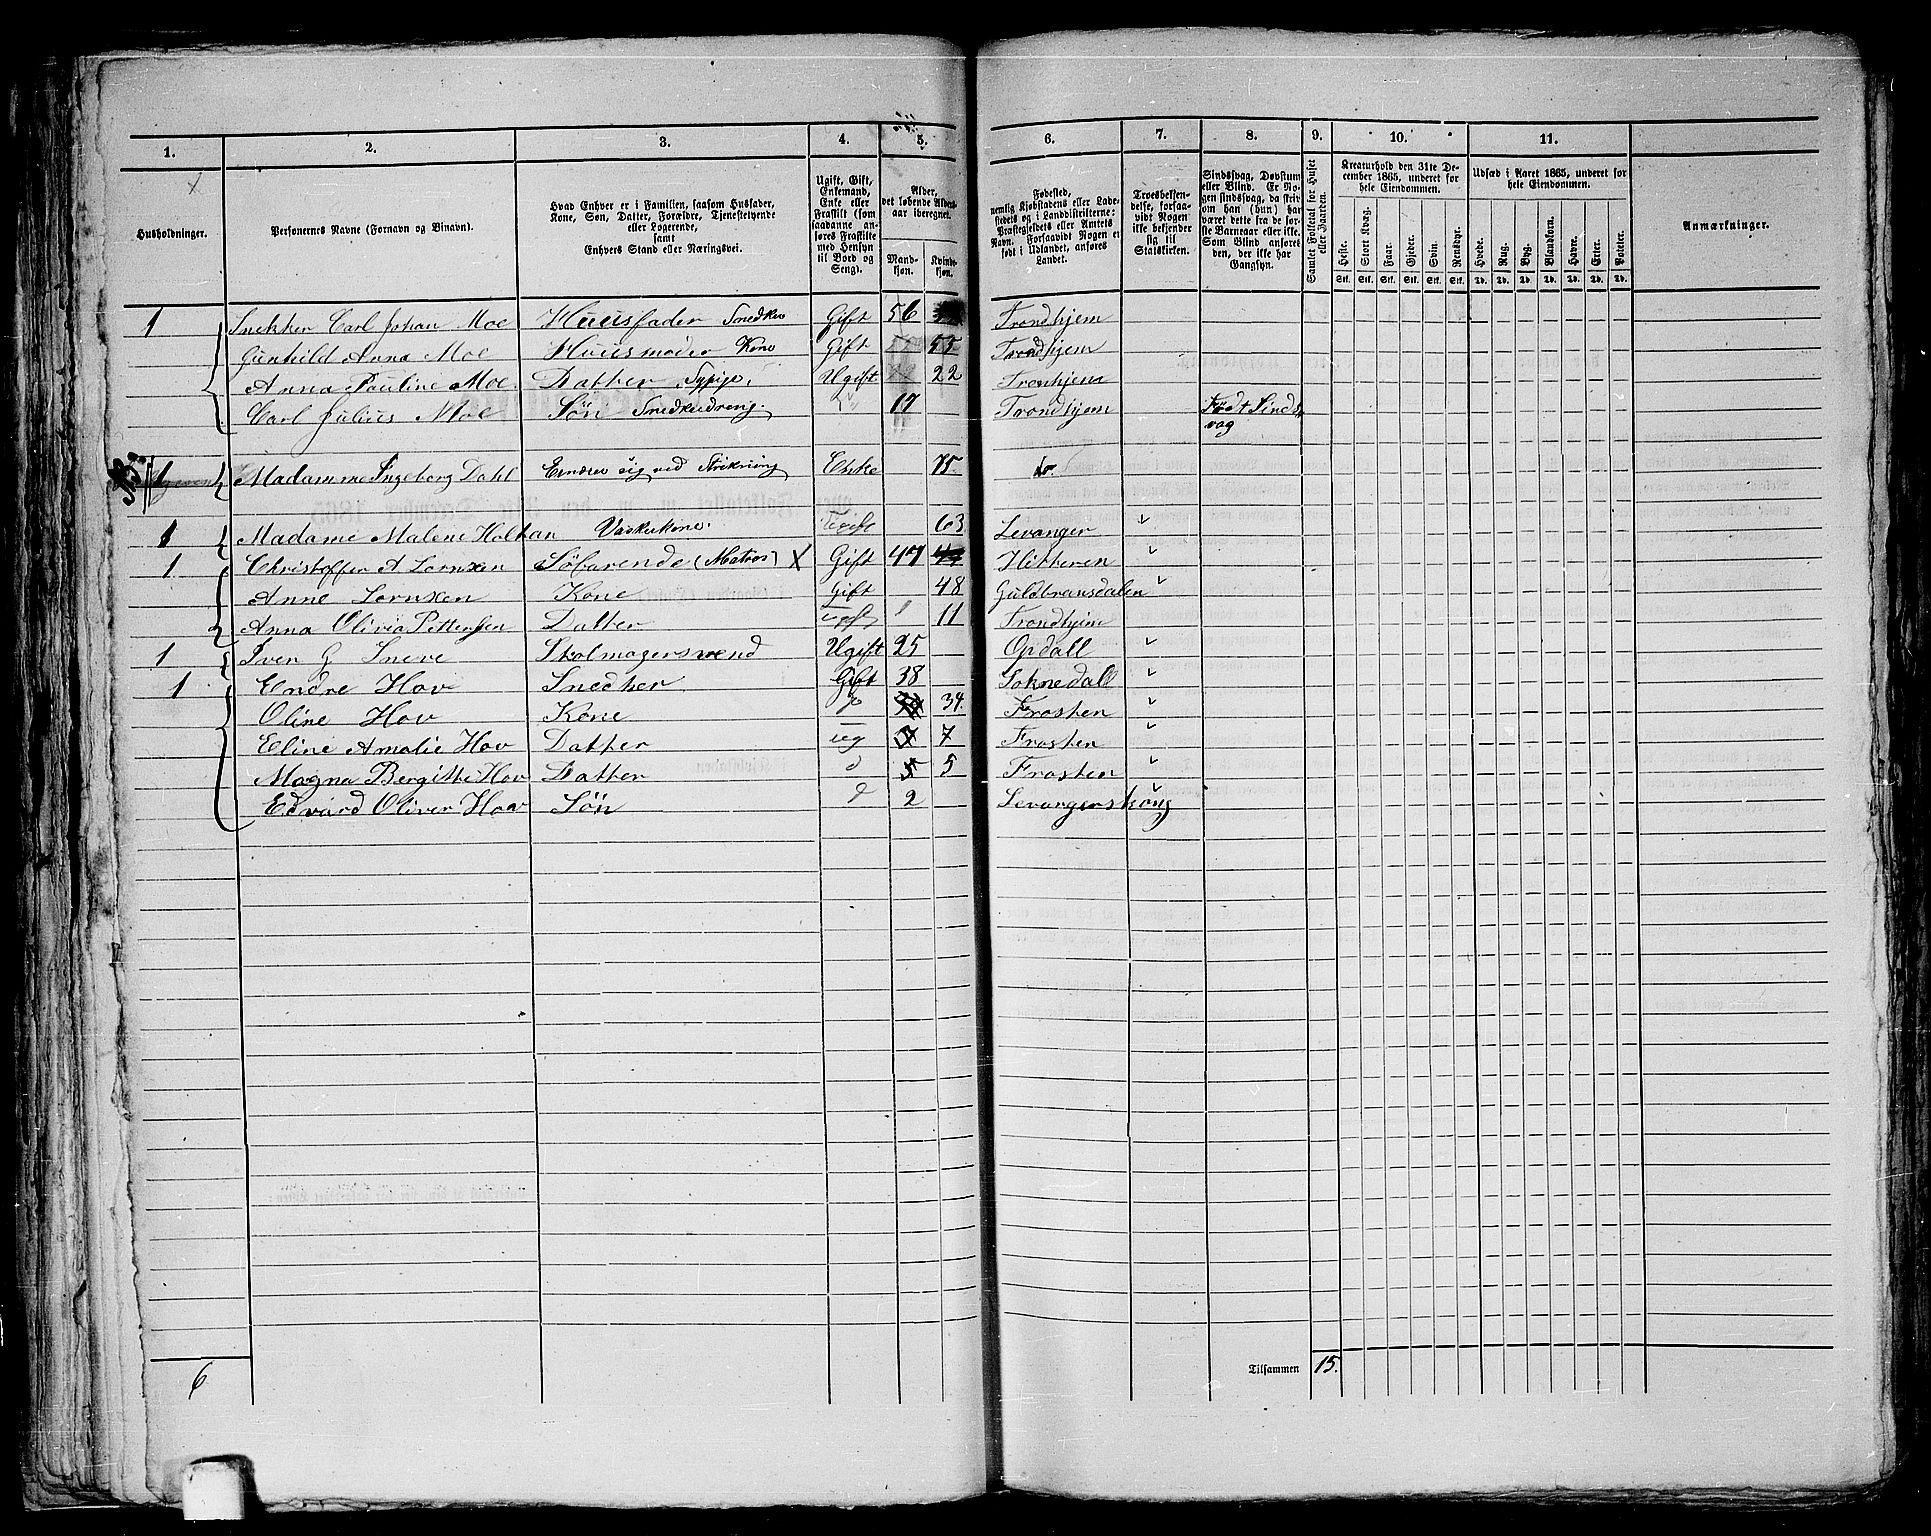 1. 2. 3. 4. 5. 6. 7. 8. 9. 10. 11.
Husholdninger.
Personernes Navne (Fornavn og Binavn).
Hvad Enhver er i Familien, saasom Husfader,
Kone, Søn, Datter, Forældre, Tjenestetyende
eller Logerende,
samt
Enhvers Stand eller Næringsvei.
Ugift, Gift,
Enkemand,
Enke eller
Fraskilt (som
saadanne an-
føres Fraskilte
med Hensyn
til Bord og
Seng).
Alder,
det løbende Alders-
aar iberegnet.
Mand-
kjøn.
Kvinde-
kjøn.
Fødested,
nemlig Kjøbstadens eller Lade-
stedets og i Landdistrikterne:
Præstegjeldets eller Amtets
Navn. Forsaavidt Nogen er
født i Udlandet, anføres
Landet.
Troesbekjen-
delse, forsaa-
vidt Nogen
ikke bekjender
sig til
Statskirken.
Sindssvag, Døvstum
eller Blind. Er No-
gen sindssvag, da skriv
om han (hun) har
været dette fra de før-
ste Barneaar eller ikke.
Som Blind anføres
den, der ikke har
Gangsyn.
Samlet Folketal for Huset
eller Gaarden.
Kreaturhold den 31te De-
cember 1865, underet for
hele Eiendommen.
Heste. Stort Kvæg. Faar. Gjeder. Svin. Rensdyr.
Stk. Stk. Stk. Stk. Stk. Stk.
Udsæd i Aaret 1865, underet for
hele Eiendommen.
Hvede. Rug. Byg. Blandkorn. Havre. Erter. Poteter.
Td. Td. Td. Td. Td. Td. Td.
Anmærkninger.
1 Snekker Carl Johan Moe Huusfader Snedker Gift 56 Trondhjem
Gunhild Anna Moe Huusmoder Kone Gift 55 Trondhjem
Anna Pauline Moe Datter Sypige Ugift 22 Tronhjem
Carl Julius Moe Søn Snedkerdreng 17 Trondhjem Født Sinds
vag
1 Madamme Ingeborg Dahl Ernærer sig ved Strikning Enke 75 do.
1 Madame Malene Holtan Vaskekone 63 Levanger
1 Christoffer A Lornxen Söfarende (Matros) X Gift 47 Hitteren
Anne Lornxen Kone Gift 48 Guldbransdalen
Anna Olivia Pettersen Datter 11 Trondhjem
1 Iven G Sneve Skolmagersvend Ugift 25 Opdall
1 Endre Hov Snedker Gift 38 Soknedal
Oline Hov Kone 34. Frosten
Eline Amalie Hov Datter ug 7 Frosten
Magna Bergitte Hov Datter 5 Frosten
Edvard Oliver Hov Søn 2 Levangerskong
6
Tilsammen 15.